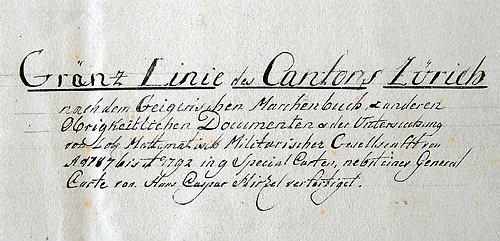 Gränz Linie des Cantons Zürich
nach dem Geigerischen Marchenbuch & anderen
Obrigkeitlichen Documenten & der Untersuchung
von Lobl. Mathematisch Militarischer Gesellschafft von
Aº 1787 bis Aº 1792 in 9 Special Carten, nebst einer General
Carte von Hans Caspar Hirzel verfertiget.